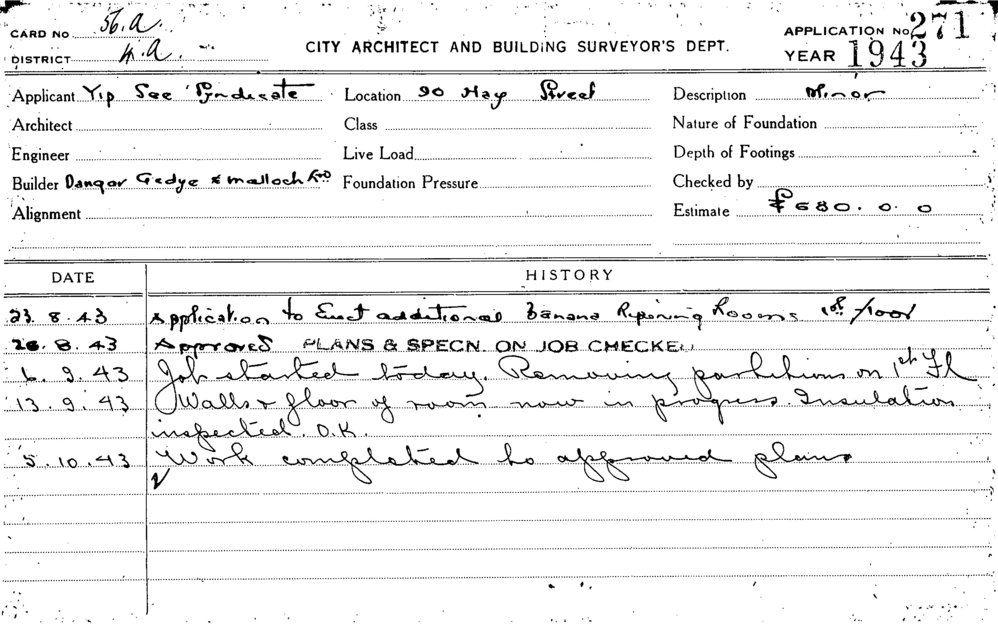 CARD NO 56.A
DISTRICT 4.A.
CITY ARCHITECT AND BUILDING SURVEYOR'S DEPT.
APPLICATION No 271
YEAR 1943
Applicant Yip See Syndicate Location 90 Hay Street Description Minor
Architect Class Nature of Foundation
Engineer Live Load Depth of Footings
Builder Dangar Gedye & Malloch Ltd Foundation Pressure Checked by
Alignment Estimate £680.0.0
DATE HISTORY
23.8.43 Application to Erect additional Banana Ripening Rooms 1st floor
26.8.43 Approved PLANS & SPECN. ON JOB CHECKED
6.9.43 Job started today. Removing partitions on 1st Fl
13.9.43 Walls & floor of room now in progress. Insulation
inspected. O.K.
5.10.43 Work completed to approved plans